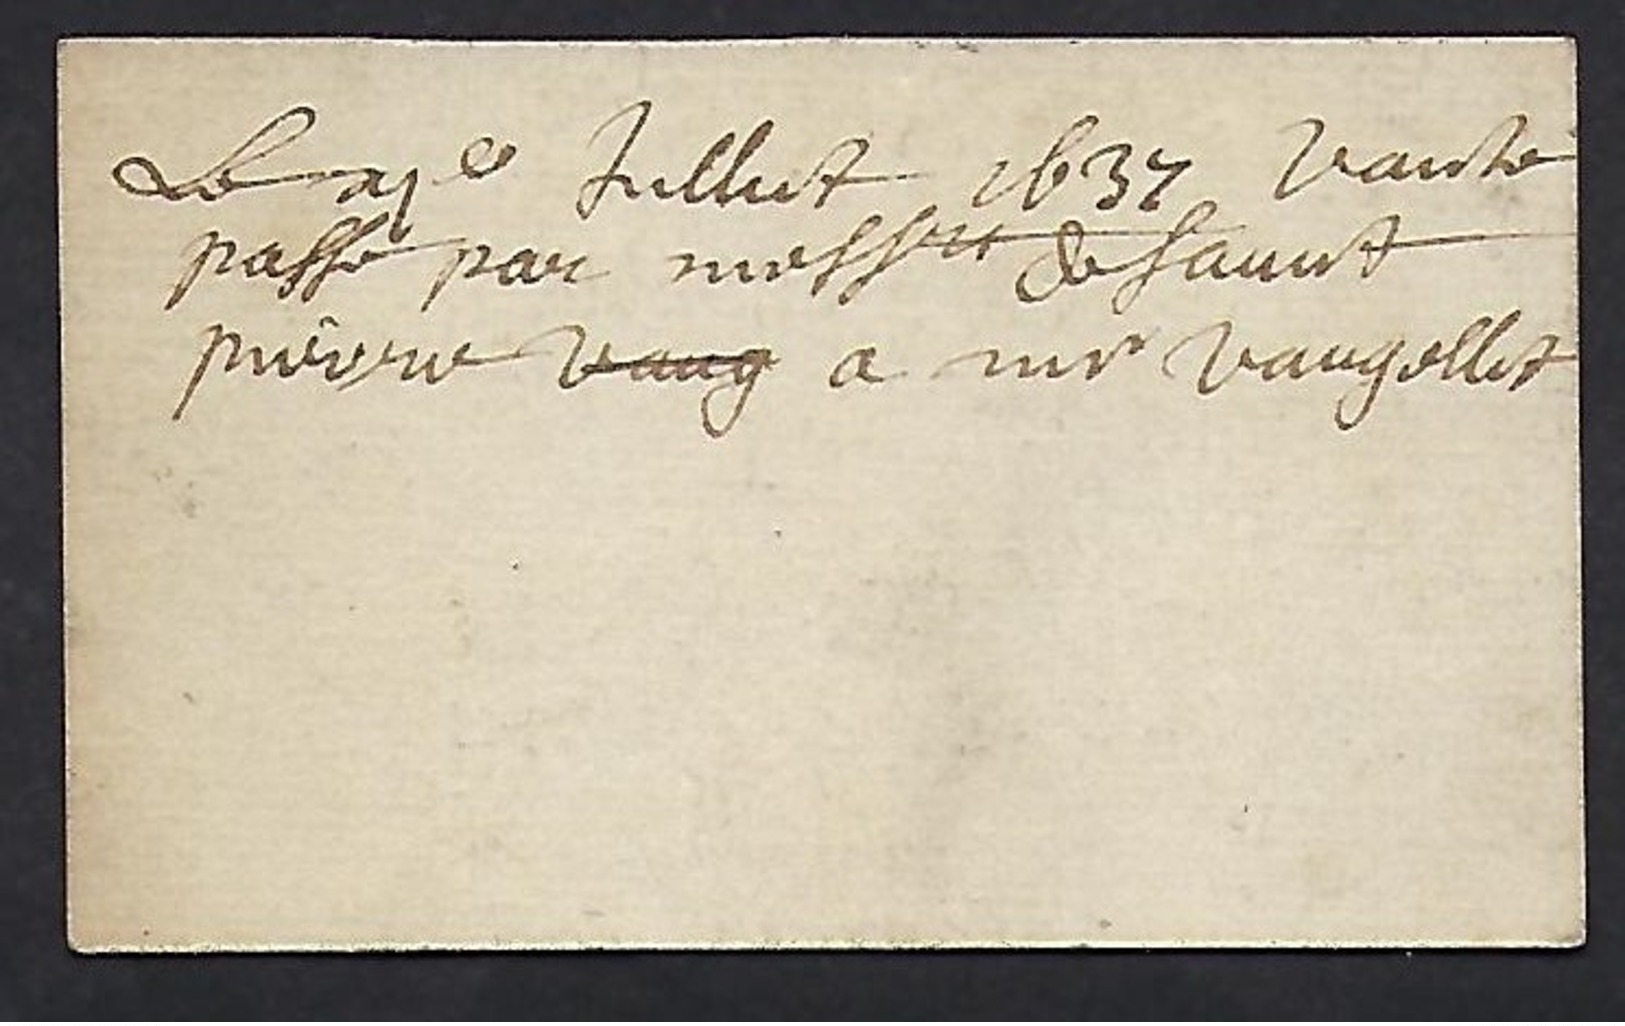 Le xj^e Jullet 1637 vante
passe par mess^rs de sainct
pierre vaug a mr vaugellet